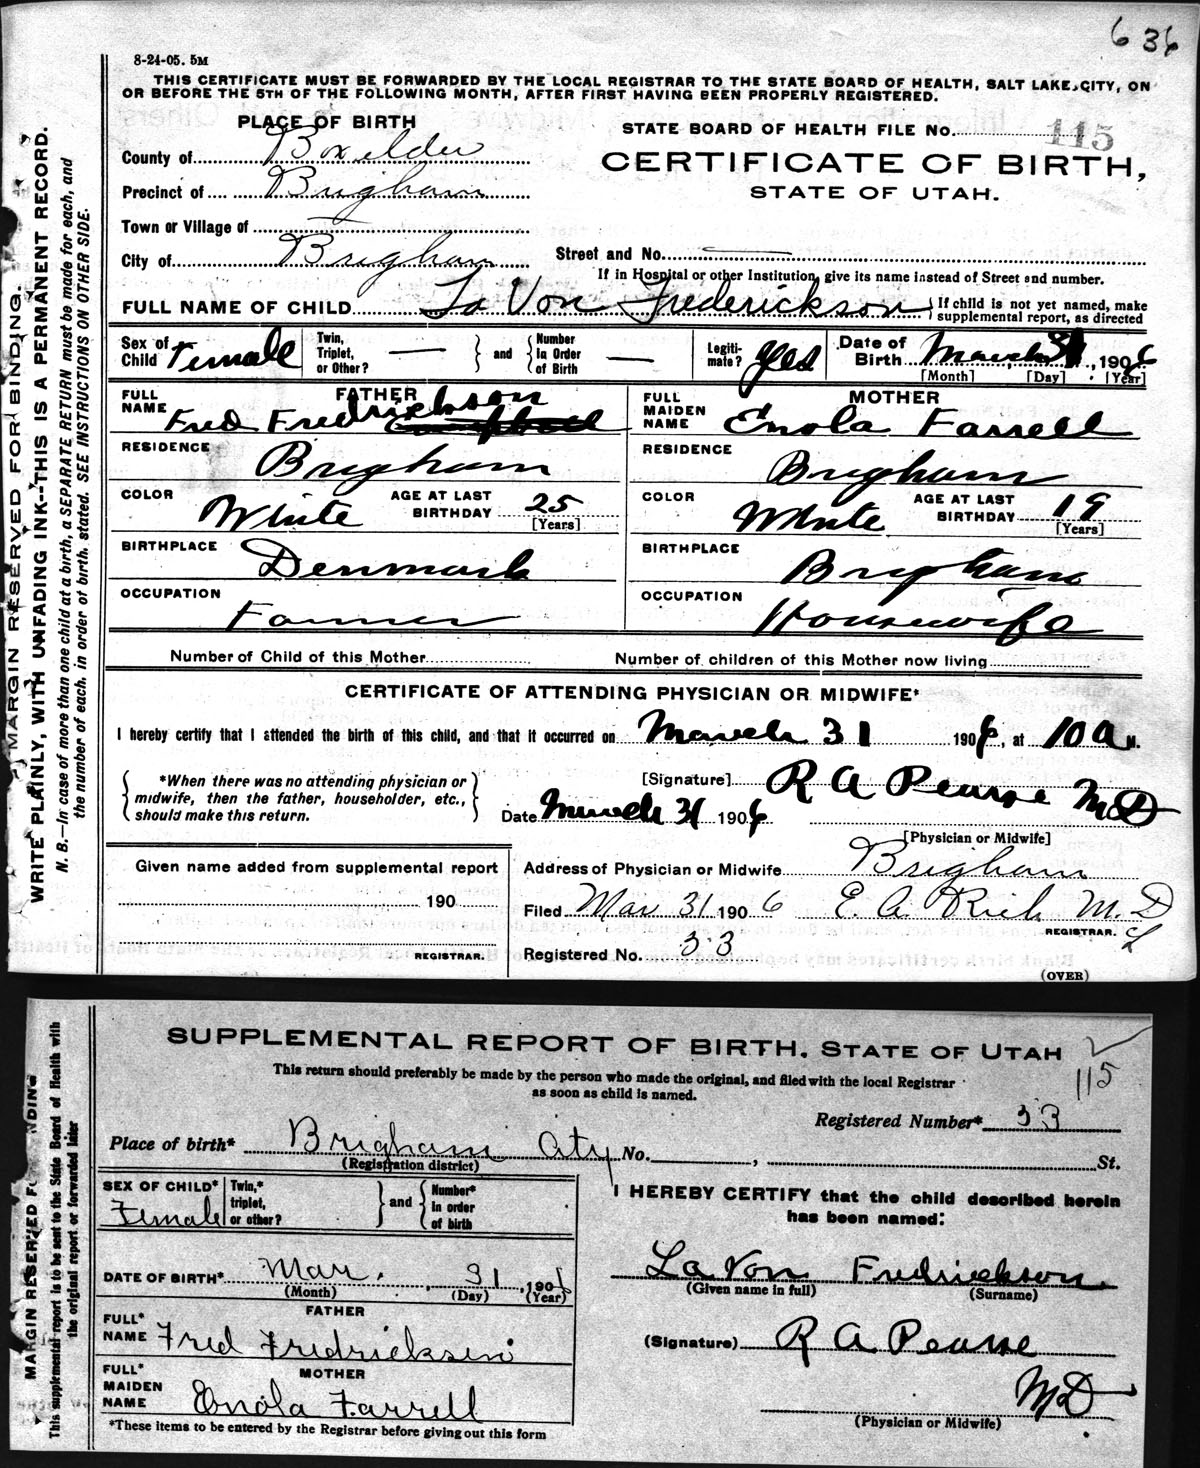 6 36
8-24-05. 5M
THIS CERTIFICATE MUST BE FORWARDED BY THE LOCAL REGISTRAR TO THE STATE BOARD OF HEALTH, SALT LAKE CITY, ON
OR BEFORE THE 5TH OF THE FOLLOWING MONTH, AFTER FIRST HAVING BEEN PROPERLY REGISTERED.
MARGIN RESERVED FOR BINDING.
WRITE PLAINLY, WITH UNFADING INK--THIS IS A PERMANENT RECORD.
N. B.—In case of more than one child at a birth, a SEPARATE RETURN must be made for each, and
the number of each, in order of birth, stated. SEE INSTRUCTIONS ON OTHER SIDE.
PLACE OF BIRTH
County of Boxelder
Precinct of Brigham
Town or Village of
City of Brigham
STATE BOARD OF HEALTH FILE No. 115
CERTIFICATE OF BIRTH,
STATE OF UTAH.
Street and No.
If in Hospital or other Institution, give its name instead of Street and number.
FULL NAME OF CHILD La Von Frederickson
If child is not yet named, make
supplemental report, as directed
Sex of Child Female
Twin, Triplet, or Other? — and Number In Order of Birth —
Legitimate? Yes
Date of Birth March 31, 1906
[Month] [Day] [Year]
FATHER
FULL NAME Fred Fredrickson
RESIDENCE Brigham
COLOR White AGE AT LAST BIRTHDAY 25
[Years]
BIRTHPLACE Denmark
OCCUPATION Farmer
MOTHER
FULL MAIDEN NAME Enola Farrell
RESIDENCE Brigham
COLOR White AGE AT LAST BIRTHDAY 19
[Years]
BIRTHPLACE Brigham
OCCUPATION Housewife
Number of Child of this Mother
Number of children of this Mother now living
CERTIFICATE OF ATTENDING PHYSICIAN OR MIDWIFE*
I hereby certify that I attended the birth of this child, and that it occurred on March 31 1906, at 10 a M.
*When there was no attending physician or
midwife, then the father, householder, etc.,
should make this return.
[Signature] R A Pearse MD
Date March 31 1906
[Physician or Midwife]
Given name added from supplemental report
190
REGISTRAR.
Address of Physician or Midwife Brigham
Filed Mar 31 1906 E. A. Rich M. D
REGISTRAR.
Registered No. 33
(OVER)
MARGIN RESERVED FOR BINDING
This supplemental report is to be sent to the State Board of Health with
the original report or forwarded later
SUPPLEMENTAL REPORT OF BIRTH. STATE OF UTAH
115
This return should preferably be made by the person who made the original, and filed with the local Registrar
as soon as child is named.
Registered Number* 33
Place of birth* Brigham City No. , St.
(Registration district)
SEX OF CHILD* Female
Twin,* triplet, or other? and Number* In order of birth
DATE OF BIRTH* Mar. 31, 190
(Month) (Day) (Year)
FATHER
FULL* NAME Fred Fredricksen
MOTHER
FULL* MAIDEN NAME Enola Farrell
*These items to be entered by the Registrar before giving out this form
I HEREBY CERTIFY that the child described herein
has been named:
La Von Fredrickson
(Given name in full) (Surname)
(Signature) R A Pearse
MD
(Physician or Midwife)